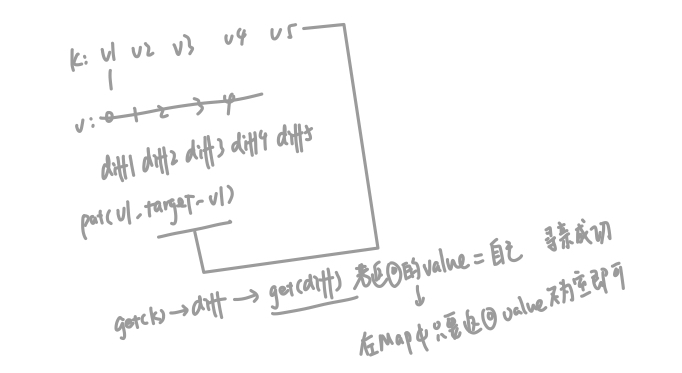 k: v1 v2 v3 v4 v5
v: 0 1 2 3 4
diff1 diff2 diff3 diff4 diff5
put(v1, target-v1)
get(k)→diff→get(diff) 若返回的value=自己 寻亲成功
在Map中只要返回value不为空即可